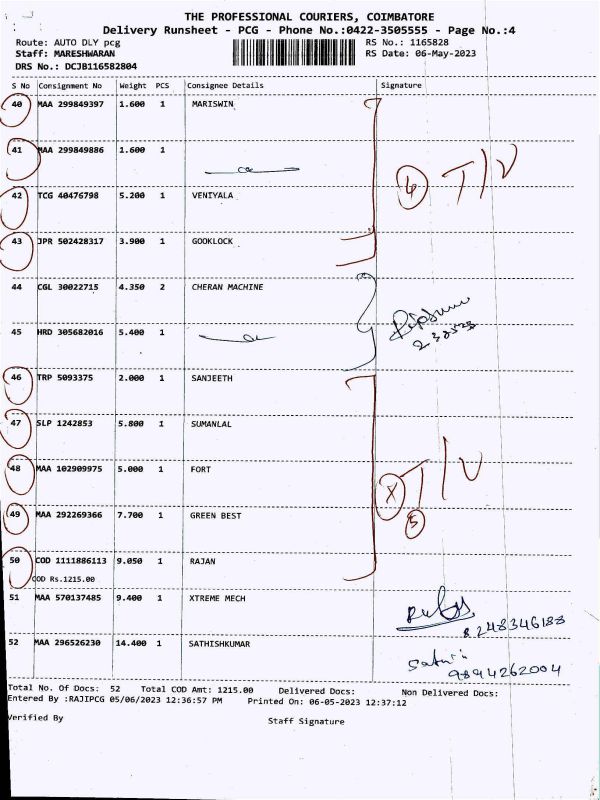 THE PROFESSIONAL COURIERS, COIMBATORE
Delivery Runsheet - PCG - Phone No.:0422-3505555 - Page No.:4
Route: AUTO DLY pcg RS No.: 1165828
Staff: MARESHWARAN RS Date: 06-May-2023
DRS No.: DCJB116582804
S No Consignment No Weight PCS Consignee Details Signature
40 MAA 299849397 1.600 1 MARISWIN
41 MAA 299849886 1.600 1
T/V
42 TCG 40476798 5.200 1 VENIYALA
43 JPR 502428317 3.900 1 GOOKLOCK
44 CGL 30022715 4.350 2 CHERAN MACHINE
45 HRD 305682016 5.400 1
46 TRP 5093375 2.000 1 SANJEETH
47 SLP 1242853 5.800 1 SUMANLAL
48 MAA 102909975 5.000 1 FORT
T/V
49 MAA 292269366 7.700 1 GREEN BEST
5
50 COD 1111886113 9.050 1 RAJAN
COD Rs.1215.00
51 MAA 570137485 9.400 1 XTREME MECH
8248346188
52 MAA 296526230 14.400 1 SATHISHKUMAR
9894262004
Total No. Of Docs: 52 Total COD Amt: 1215.00 Delivered Docs: Non Delivered Docs:
Entered By :RAJIPCG 05/06/2023 12:36:57 PM Printed On: 06-05-2023 12:37:12
Verified By Staff Signature